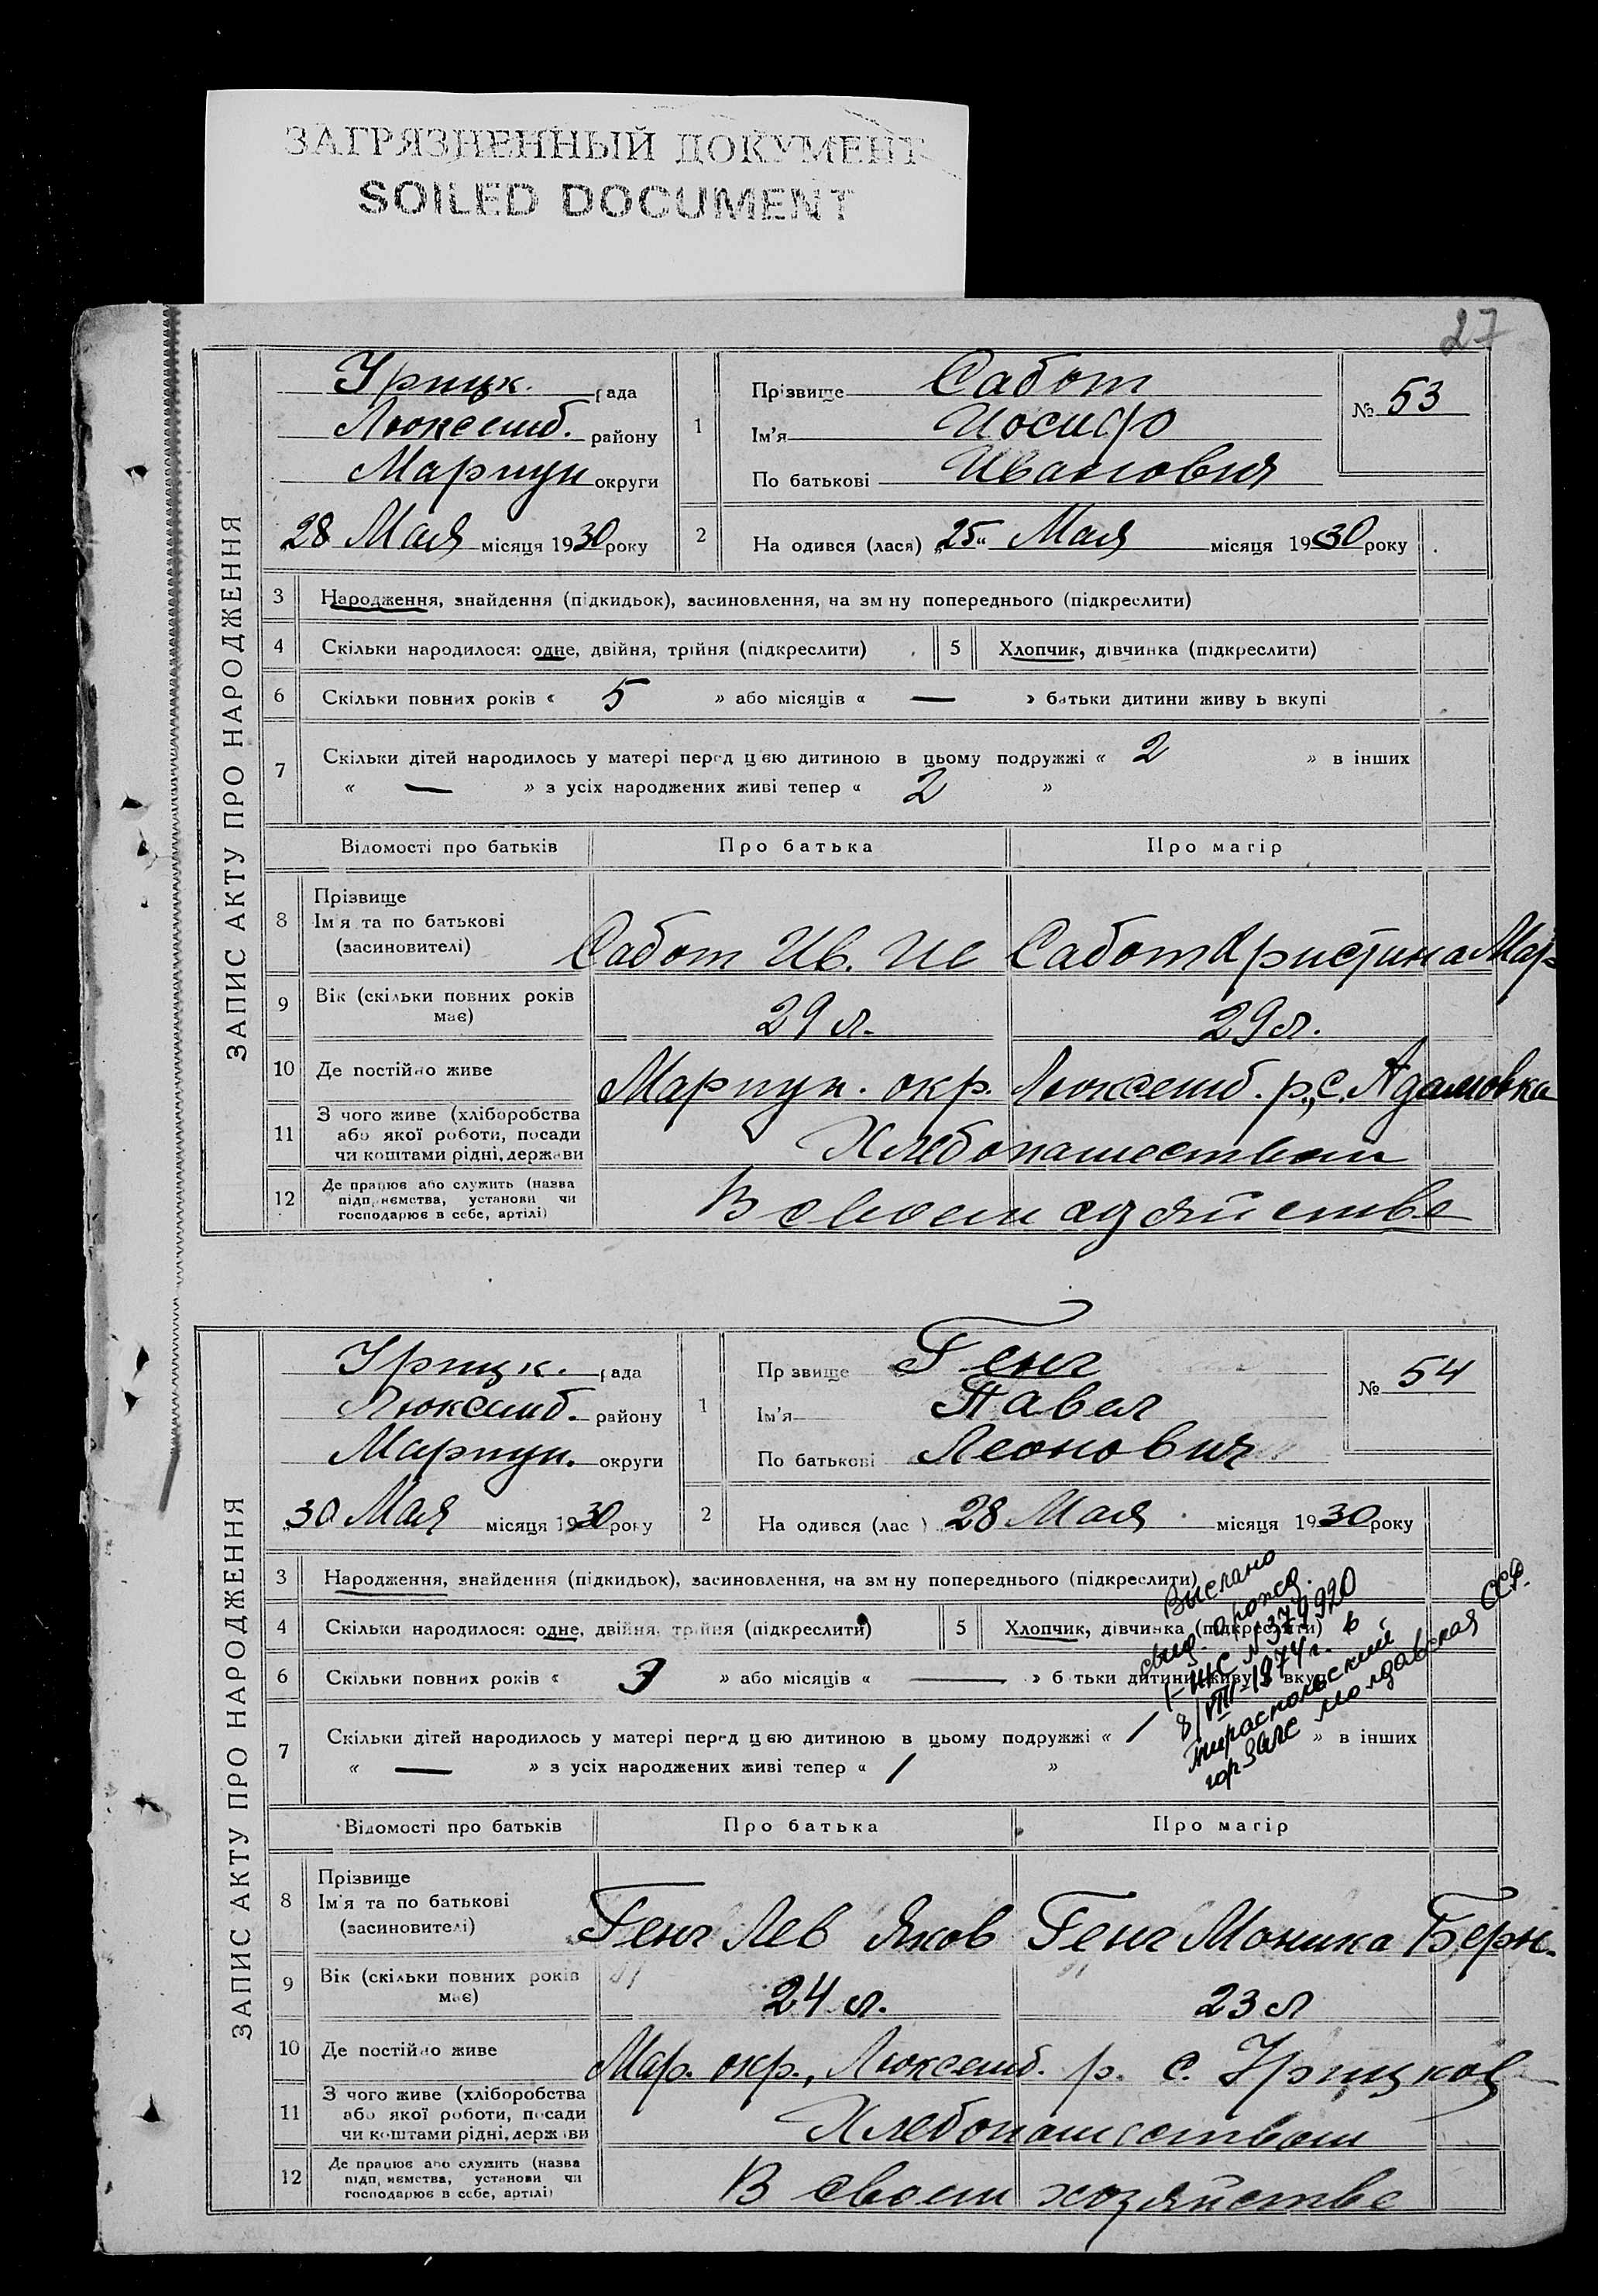 ЗАГРЯЗНЕННЫЙ ДОКУМЕНТ
SOILED DOCUMENT
27
ЗАПИС АКТУ ПРО НАРОДЖЕННЯ
Урицк. рада
Люксемб. району
Мариуп округи
28 Мая місяця 1930 року
1
Прізвище Сабот
Ім'я Иосиф
По батькові Иванович
№ 53
2
На одився (лася) „25“ Мая місяця 1930 року
3 Народження, знайдення (підкидьок), засиновлення, на зм ну попереднього (підкреслити)
4 Скільки народилося: одне, двійня, трійня (підкреслити) 5 Хлопчик, дівчинка (підкреслити)
6 Скільки повних років « 5 » або місяців « — » батьки дитини живу ь вкупі
7 Скільки дітей народилось у матері перед цею дитиною в цьому подружжі « 2 » в інших
« — » з усіх народжених живі тепер « 2 »
Відомості про батьків Про батька Про матір
8 Прізвище
Ім'я та по батькові
(засиновителі)
Сабот Ив. Ис Сабот Кристина Мар
9 Вік (скільки повних років має)
29 л. 29 л.
10 Де постійно живе
Мариуп. окр. Люксемб. р., с. Адамовка
11 З чого живе (хліборобства
або якої роботи, посади
чи коштами рідні, держави
Хлебопашеством
12 Де працює або служить (назва
підприємства, установи чи
господарює в себе, артілі)
В своем
ЗАПИС АКТУ ПРО НАРОДЖЕННЯ
Урицк. рада
Люксемб. району
Мариуп. округи
„30 Мая місяця 1930 року
1
Пр звище Генг
Ім'я Павел
По батькові Леонович
№ 54
2
На одився (лас ) „28 Мая місяця 1930 року
3 Народження, знайдення (підкидьок), засиновлення, на зм ну попереднього (підкреслити)
4 Скільки народилося: одне, двійня, трійня (підкреслити) 5 Хлопчик, дівчинка (підкреслити)
6 Скільки повних років « 3 » або місяців « — » б тьки дитини живу вкупі
7 Скільки дітей народилось у матері перед цею дитиною в цьому подружжі « 1 » в інших
« — » з усіх народжених живі тепер « 1 »
Выслано
свид. о рожд.
I-ЖС № 379920
8/VIII-1974 г. в
тираспольский
горЗАГС Молдавская ССР.
Відомості про батьків Про батька Про матір
8 Прізвище
Ім'я та по батькові
(засиновителі)
Генг Лев Яков Генг Моника Берн.
9 Вік (скільки повних років має)
24 л. 23 л
10 Де постійно живе
Мар. окр., Люксемб. р. с. Урицкое
11 З чого живе (хліборобства
або якої роботи, посади
чи коштами рідні, держави
Хлебопашеством
12 Де працює або служить (назва
підприємства, установи чи
господарює в себе, артілі)
В своем хозяйстве